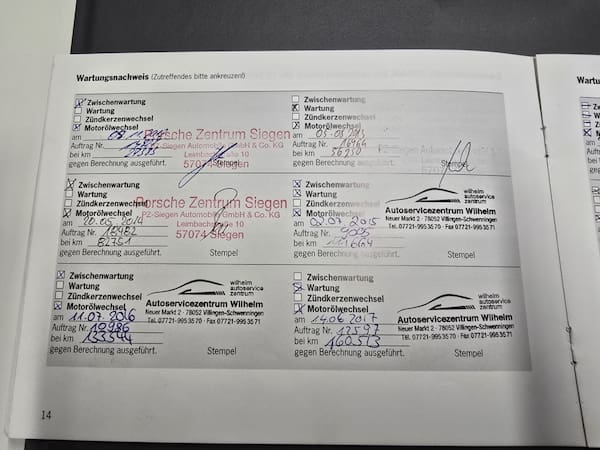 Wartungsnachweis (Zutreffendes bitte ankreuzen!)
Zwischenwartung
Wartung
Zündkerzenwechsel
Motorölwechsel
am
Auftrag Nr.
bei km
gegen Berechnung ausgeführt.
Porsche Zentrum Siegen
PZ-Siegen Automobil GmbH & Co. KG
Leimbachstraße 10
57074 Siegen
Stempel
Zwischenwartung
Wartung
Zündkerzenwechsel
Motorölwechsel
am
Auftrag Nr. 16964
bei km 56250
gegen Berechnung ausgeführt.
Stempel
Zwischenwartung
Wartung
Zündkerzenwechsel
Motorölwechsel
am 20.05.2014
Auftrag Nr. 18482
bei km 82351
gegen Berechnung ausgeführt.
Porsche Zentrum Siegen
PZ-Siegen Automobil GmbH & Co. KG
Leimbachstraße 10
57074 Siegen
Stempel
Zwischenwartung
Wartung
Zündkerzenwechsel
Motorölwechsel
am 02.07.2015
Auftrag Nr. 9005
bei km 111664
gegen Berechnung ausgeführt.
wilhelm
autoservice
zentrum
Autoservicezentrum Wilhelm
Neuer Markt 2 · 78052 Villingen-Schwenningen
Tel. 07721-9953570 · Fax 07721-9953571
Stempel
Zwischenwartung
Wartung
Zündkerzenwechsel
Motorölwechsel
am 11.07.2016
Auftrag Nr. 10986
bei km 133544
gegen Berechnung ausgeführt.
wilhelm
autoservice
zentrum
Autoservicezentrum Wilhelm
Neuer Markt 2 · 78052 Villingen-Schwenningen
Tel. 07721-9953570 · Fax 07721-9953571
Stempel
Zwischenwartung
Wartung
Zündkerzenwechsel
Motorölwechsel
am 14.06.2017
Auftrag Nr. 12597
bei km 160573
gegen Berechnung ausgeführt.
wilhelm
autoservice
zentrum
Autoservicezentrum Wilhelm
Neuer Markt 2 · 78052 Villingen-Schwenningen
Tel. 07721-9953570 · Fax 07721-9953571
Stempel
14